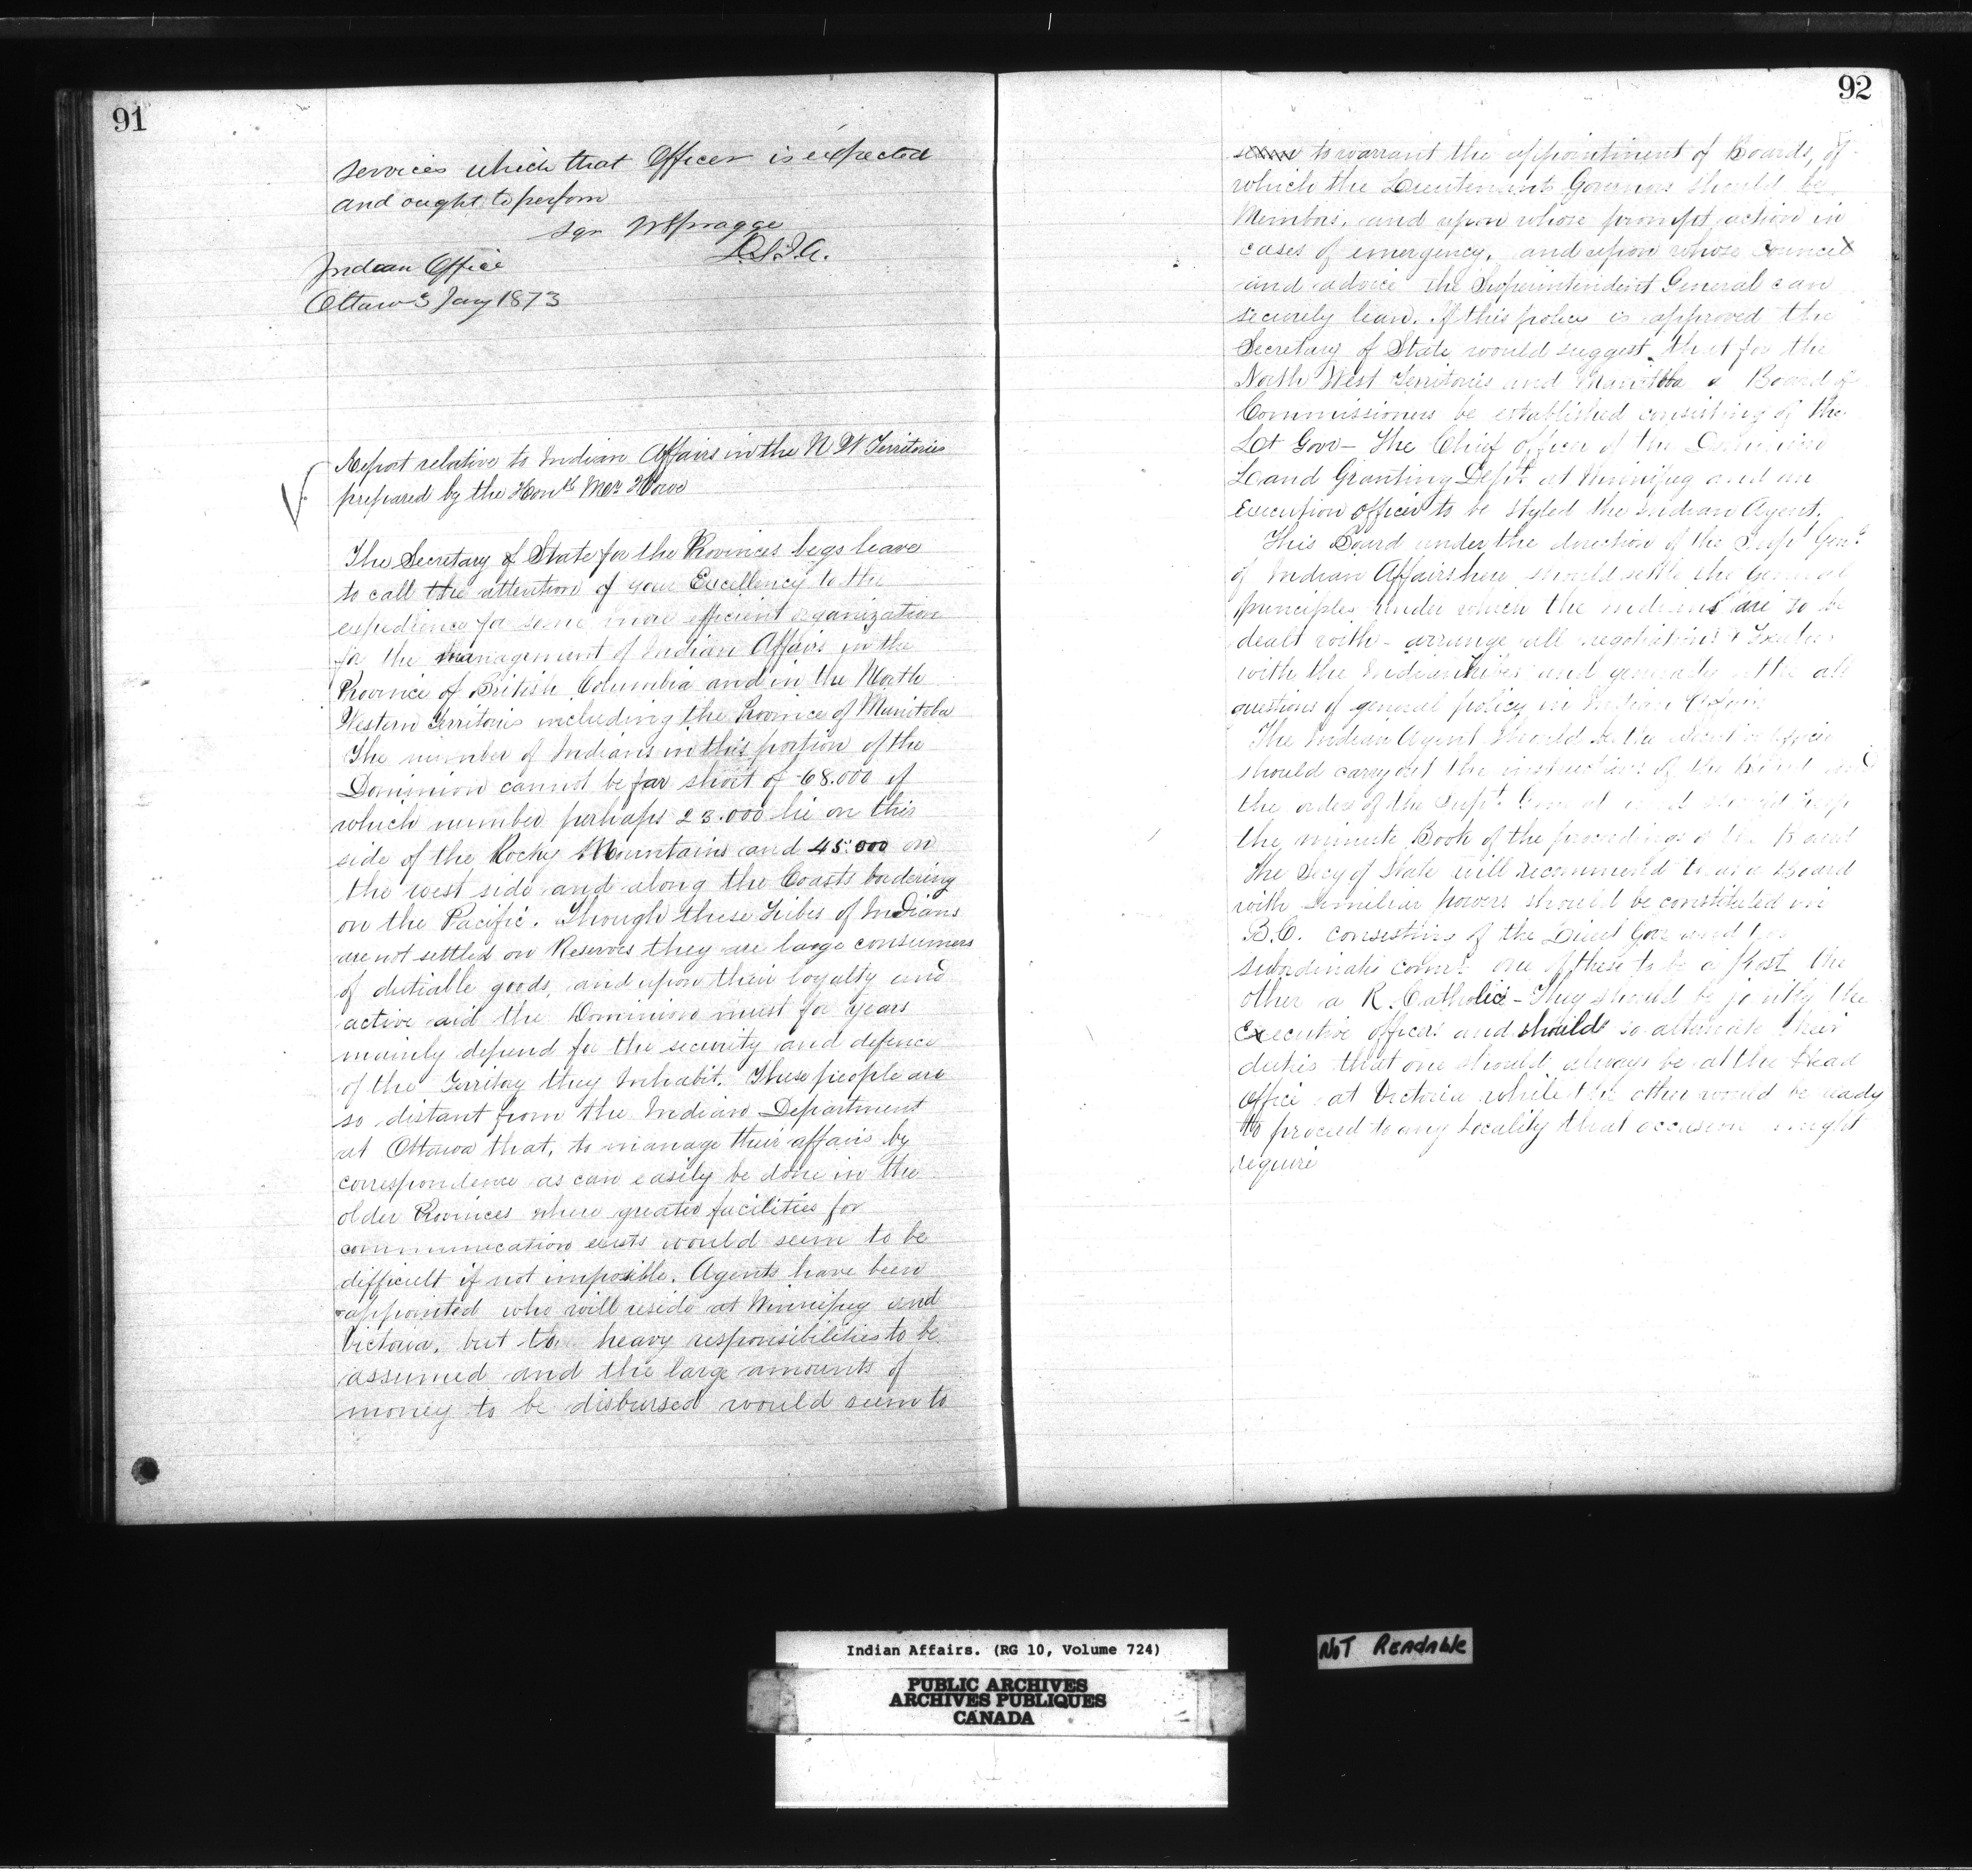 91
services which that Officer is expected
and ought to perform
sgn W Spragge
D.S.I.A.
Indian Office
Ottawa 3 Jany 1873
Report relative to Indian Affairs in the N W Territories
prepared by the Honble Mr Howe
The Secretary of State for the Provinces begs leave
to call the attention of your Excellency to the
expediency for some more efficient organization
for the management of Indian Affairs in the
Province of British Columbia and in the North
Western Territories including the Province of Manitoba
The number of Indians in this portion of the
Dominion cannot be far short of 68.000 of
which number perhaps 23.000 lie on this
side of the Rocky Mountains and 45.000 on
the west side and along the Coasts bordering
on the Pacific. Though these Tribes of Indians
are not settled on Reserves they are large consumers
of dutiable goods, and upon their loyalty and
active aid the Dominion must for years
mainly depend for the security and defence
of the Territory they Inhabit. These people are
so distant from the Indian Department
at Ottawa that, to manage their affairs by
correspondence as can easily be done in the
older Provinces where greater facilities for
communication exists would seem to be
difficult if not impossible. Agents have been
appointed who will reside at Winnipeg and
Victoria, but the heavy responsibilities to be
assumed and the large amounts of
money to be disbursed would seem to
92
to warrant the appointment of Boards, of
which the Lieutenant Governors should be
Members, and upon whose prompt action in
cases of emergency, and upon whose Council
and advice the Superintendent General can
securely lean. If this policy is approved the
Secretary of State would suggest that for the
North West Territories and Manitoba a Board of
Commissioners be established consisting of the
Lt Govr - The Chief officer of the Dominion
Land Granting Dept. at Winnipeg and an
Execution officer to be styled the Indian Agent.
This Board under the direction of the Supt Genl
of Indian Affairs here should settle the General
principles under which the indians are to be
dealt with - arrange all negotiations & Treaties
with the Indian tribes and generally settle all
questions of general policy in Indian Affairs
The Indian Agent should be the Executive officer
should carry out the instructions of the Board and
the orders of the Supt. General and should keep
the minute Book of the proceedings of the Board
The Secy of State will recommend that a Board
with similiar powers should be constituted in
B.C. consisting of the Lieut Gov and two
subordinate comrs one of these to be a Prost the
other a R. Catholic - They should be jointly the
Executive officers and should so alternate their
duties that one should always be at the Head
Office at Victoria while the other would be ready
to proceed to any Locality that occasion might
require
Indian Affairs. (RG 10, Volume 724)
PUBLIC ARCHIVES
ARCHIVES PUBLIQUES
CANADA
NOT READABLE